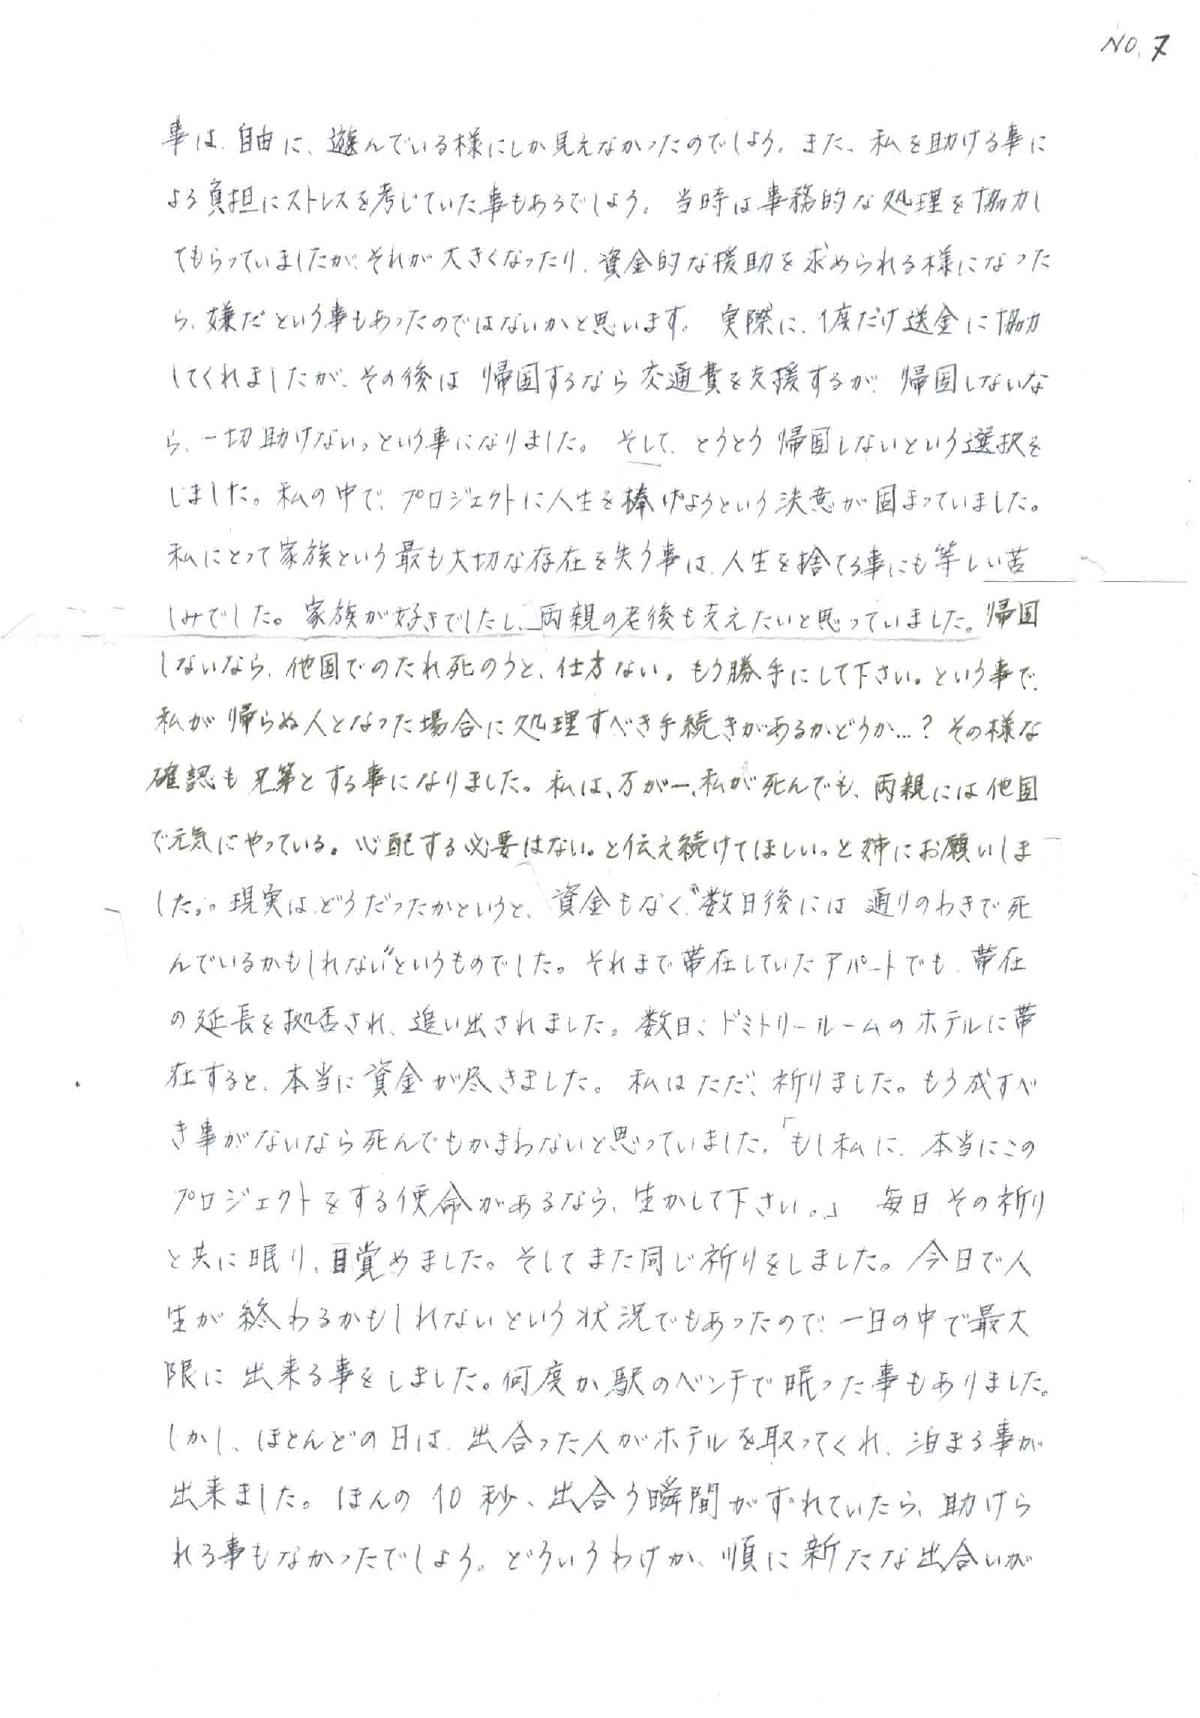 NO.7
事は、自由に、遊んでいる様にしか見えなかったのでしょう。また、私を助ける事に
よる負担にストレスを考じていた事もあるでしょう。当時は事務的な処理を協力し
てもらっていましたが、それが大きくなったり、資金的な援助を求められる様になった
ら、嫌だという事もあったのではないかと思います。実際に、1度だけ送金に協力
してくれましたが、その後は帰国するなら交通費を支援するが、帰国しないな
ら、一切助けない。という事になりました。そして、とうとう帰国しないという選択を
しました。私の中で、プロジェクトに人生を捧げようという決意が固まっていました。
私にとって家族という最も大切な存在を失う事は、人生を捨てる事にも等しい苦
しみでした。家族が好きでしたし、両親の老後も支えたいと思っていました。帰国
しないなら、他国でのたれ死のうと、仕方ない。もう勝手にして下さい。という事で、
私が帰らぬ人となった場合に処理すべき手続きがあるかどうか…?その様な
確認も兄弟とする事になりました。私は、万が一、私が死んでも、両親には他国
で元気にやっている。心配する必要はない。と伝え続けてほしい。と姉にお願いしま
した。。現実はどうだったかというと、資金もなく、“数日後には通りのわきで死
んでいるかもしれない”というものでした。それまで帯在していたアパートでも、帯在
の延長を拠否され、追い出されました。数日、ドミトリールームのホテルに帯
在すると、本当に資金が尽きました。私はただ、祈りました。もう成すべ
き事がないなら死んでもかまわないと思っていました。「もし私に、本当にこの
プロジェクトをする使命があるなら、生かして下さい。」毎日その祈り
と共に眠り、目覚めました。そしてまた同じ祈りをしました。今日で人
生が終わるかもしれないという状況でもあったので、一日の中で最大
限に出来る事をしました。何度か駅のベンチで眠った事もありました。
しかし、ほとんどの日は、出合った人がホテルを取ってくれ、泊まる事が
出来ました。ほんの10秒、出合う瞬間がずれていたら、助けら
れる事もなかったでしょう。どういうわけか、順に新たな出合いが